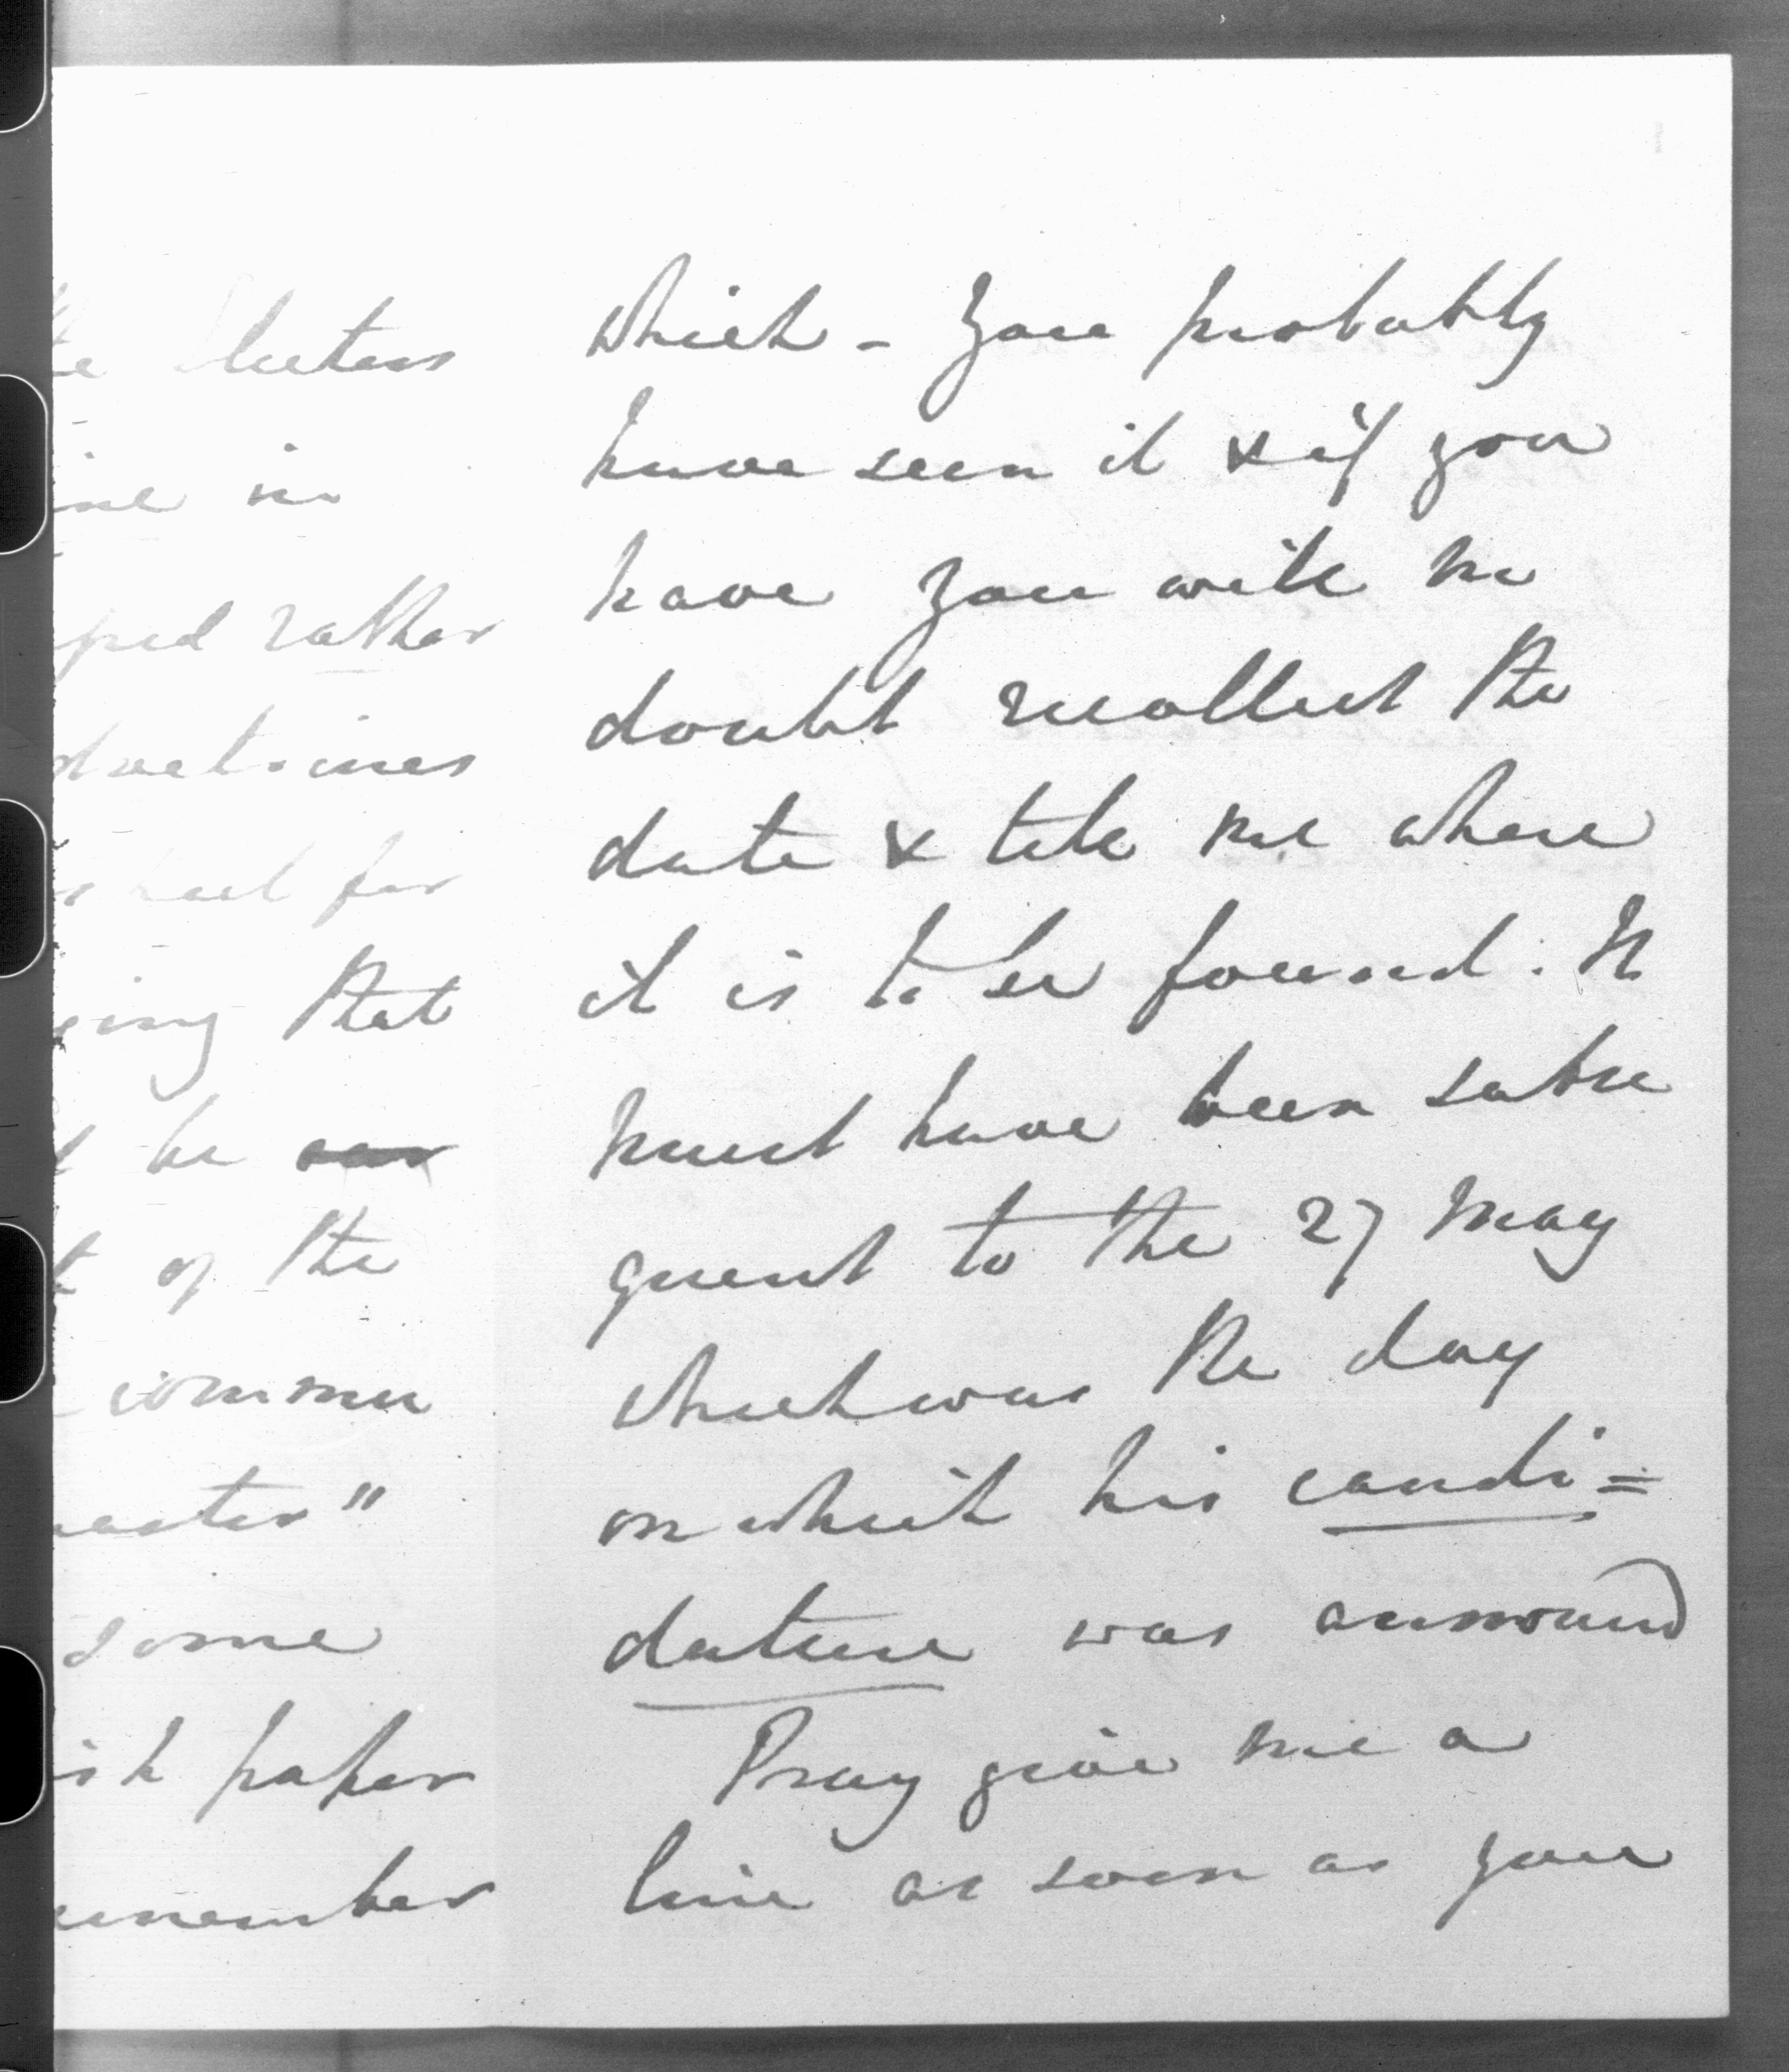 Electors
in
rather
doctrines
for
that
be
of the
commu
"
some
paper
remember
which - You probably
have seen it & if you
have you will no
doubt recollect the
date & tell me where
it is to be found. It
must have been subse
quent to the 27 May
which was the day
on which his candi=
dature was annound
Pray give me a
line as soon as you